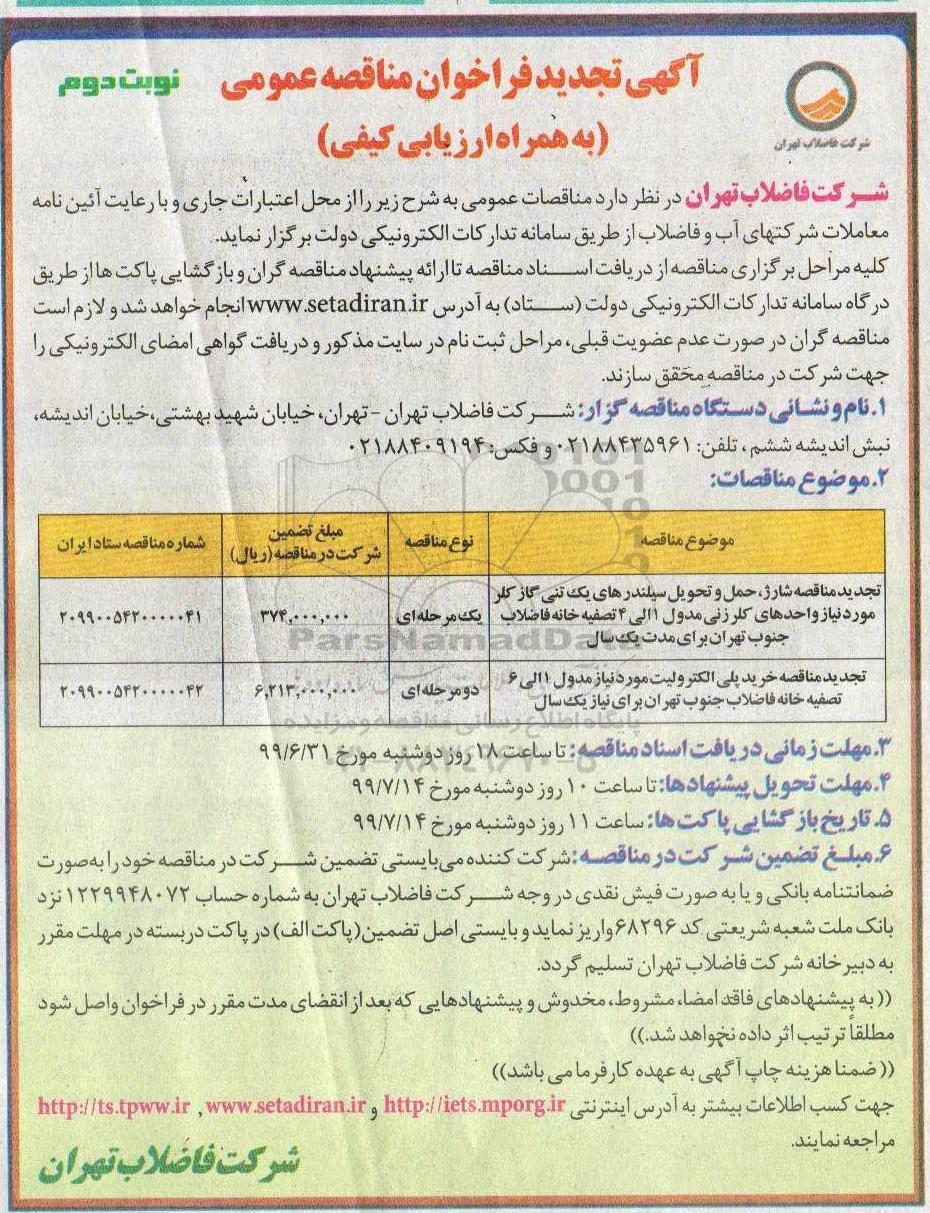 آگهی تجدید فراخوان مناقصه عمومی
نوبت دوم
(به همراه ارزیابی کیفی)
شرکت فاضلاب تهران
شرکت فاضلاب تهران در نظر دارد مناقصات عمومی به شرح زیر را از محل اعتبارات جاری و با رعایت آئین نامه
معاملات شرکتهای آب و فاضلاب از طریق سامانه تدارکات الکترونیکی دولت برگزار نماید.
کلیه مراحل برگزاری مناقصه از دریافت اسناد مناقصه تا ارائه پیشنهاد مناقصه گران و بازگشایی پاکت ها از طریق
درگاه سامانه تدارکات الکترونیکی دولت (ستاد) به آدرس www.setadiran.ir انجام خواهد شد و لازم است
مناقصه گران در صورت عدم عضویت قبلی، مراحل ثبت نام در سایت مذکور و دریافت گواهی امضای الکترونیکی را
جهت شرکت در مناقصه محقق سازند.
۱.نام و نشانی دستگاه مناقصه گزار: شرکت فاضلاب تهران -تهران، خیابان شهید بهشتی،خیابان اندیشه،
نبش اندیشه ششم ، تلفن: ۰۲۱۸۸۴۳۵۹۶۱ و فکس: ۰۲۱۸۸۴۰۹۱۹۴
۲.موضوع مناقصات:
موضوع مناقصه
نوع مناقصه
مبلغ تضمین
شرکت در مناقصه (ریال)
شماره مناقصه ستاد ایران
تجدید مناقصه شارژ، حمل و تحویل سیلندرهای یک تنی گاز کلر
مورد نیاز واحدهای کلرزنی مدول ۱ الی ۴ تصفیه خانه فاضلاب
جنوب تهران برای مدت یک سال
یک مرحله ای
۳۷۴,۰۰۰,۰۰۰
۲۰۹۹۰۰۵۴۲۰۰۰۰۰۴۱
تجدید مناقصه خرید پلی الکترولیت مورد نیاز مدول ۱ الی ۶
تصفیه خانه فاضلاب جنوب تهران برای نیاز یک سال
دو مرحله ای
۶,۲۱۳,۰۰۰,۰۰۰
۲۰۹۹۰۰۵۴۲۰۰۰۰۰۴۲
ParsNamadData
پایگاه اطلاع رسانی مناقصه و مزایده
۳.مهلت زمانی دریافت اسناد مناقصه: تا ساعت ۱۸ روز دوشنبه مورخ ۹۹/۶/۳۱
۴.مهلت تحویل پیشنهادها: تا ساعت ۱۰ روز دوشنبه مورخ ۹۹/۷/۱۴
۵.تاریخ بازگشایی پاکت ها: ساعت ۱۱ روز دوشنبه مورخ ۹۹/۷/۱۴
۶.مبلغ تضمین شرکت در مناقصه: شرکت کننده می بایستی تضمین شرکت در مناقصه خود را به صورت
ضمانتنامه بانکی و یا به صورت فیش نقدی در وجه شرکت فاضلاب تهران به شماره حساب ۱۲۲۹۹۴۸۰۷۲ نزد
بانک ملت شعبه شریعتی کد ۶۸۲۹۶ واریز نماید و بایستی اصل تضمین (پاکت الف) در پاکت دربسته در مهلت مقرر
به دبیرخانه شرکت فاضلاب تهران تسلیم گردد.
((به پیشنهادهای فاقد امضا، مشروط، مخدوش و پیشنهادهایی که بعد از انقضای مدت مقرر در فراخوان واصل شود
مطلقاً ترتیب اثر داده نخواهد شد.))
((ضمنا هزینه چاپ آگهی به عهده کارفرما می باشد))
جهت کسب اطلاعات بیشتر به آدرس اینترنتی http://iets.mporg.ir و www.setadiran.ir , http://ts.tpww.ir
مراجعه نمایند.
شرکت فاضلاب تهران